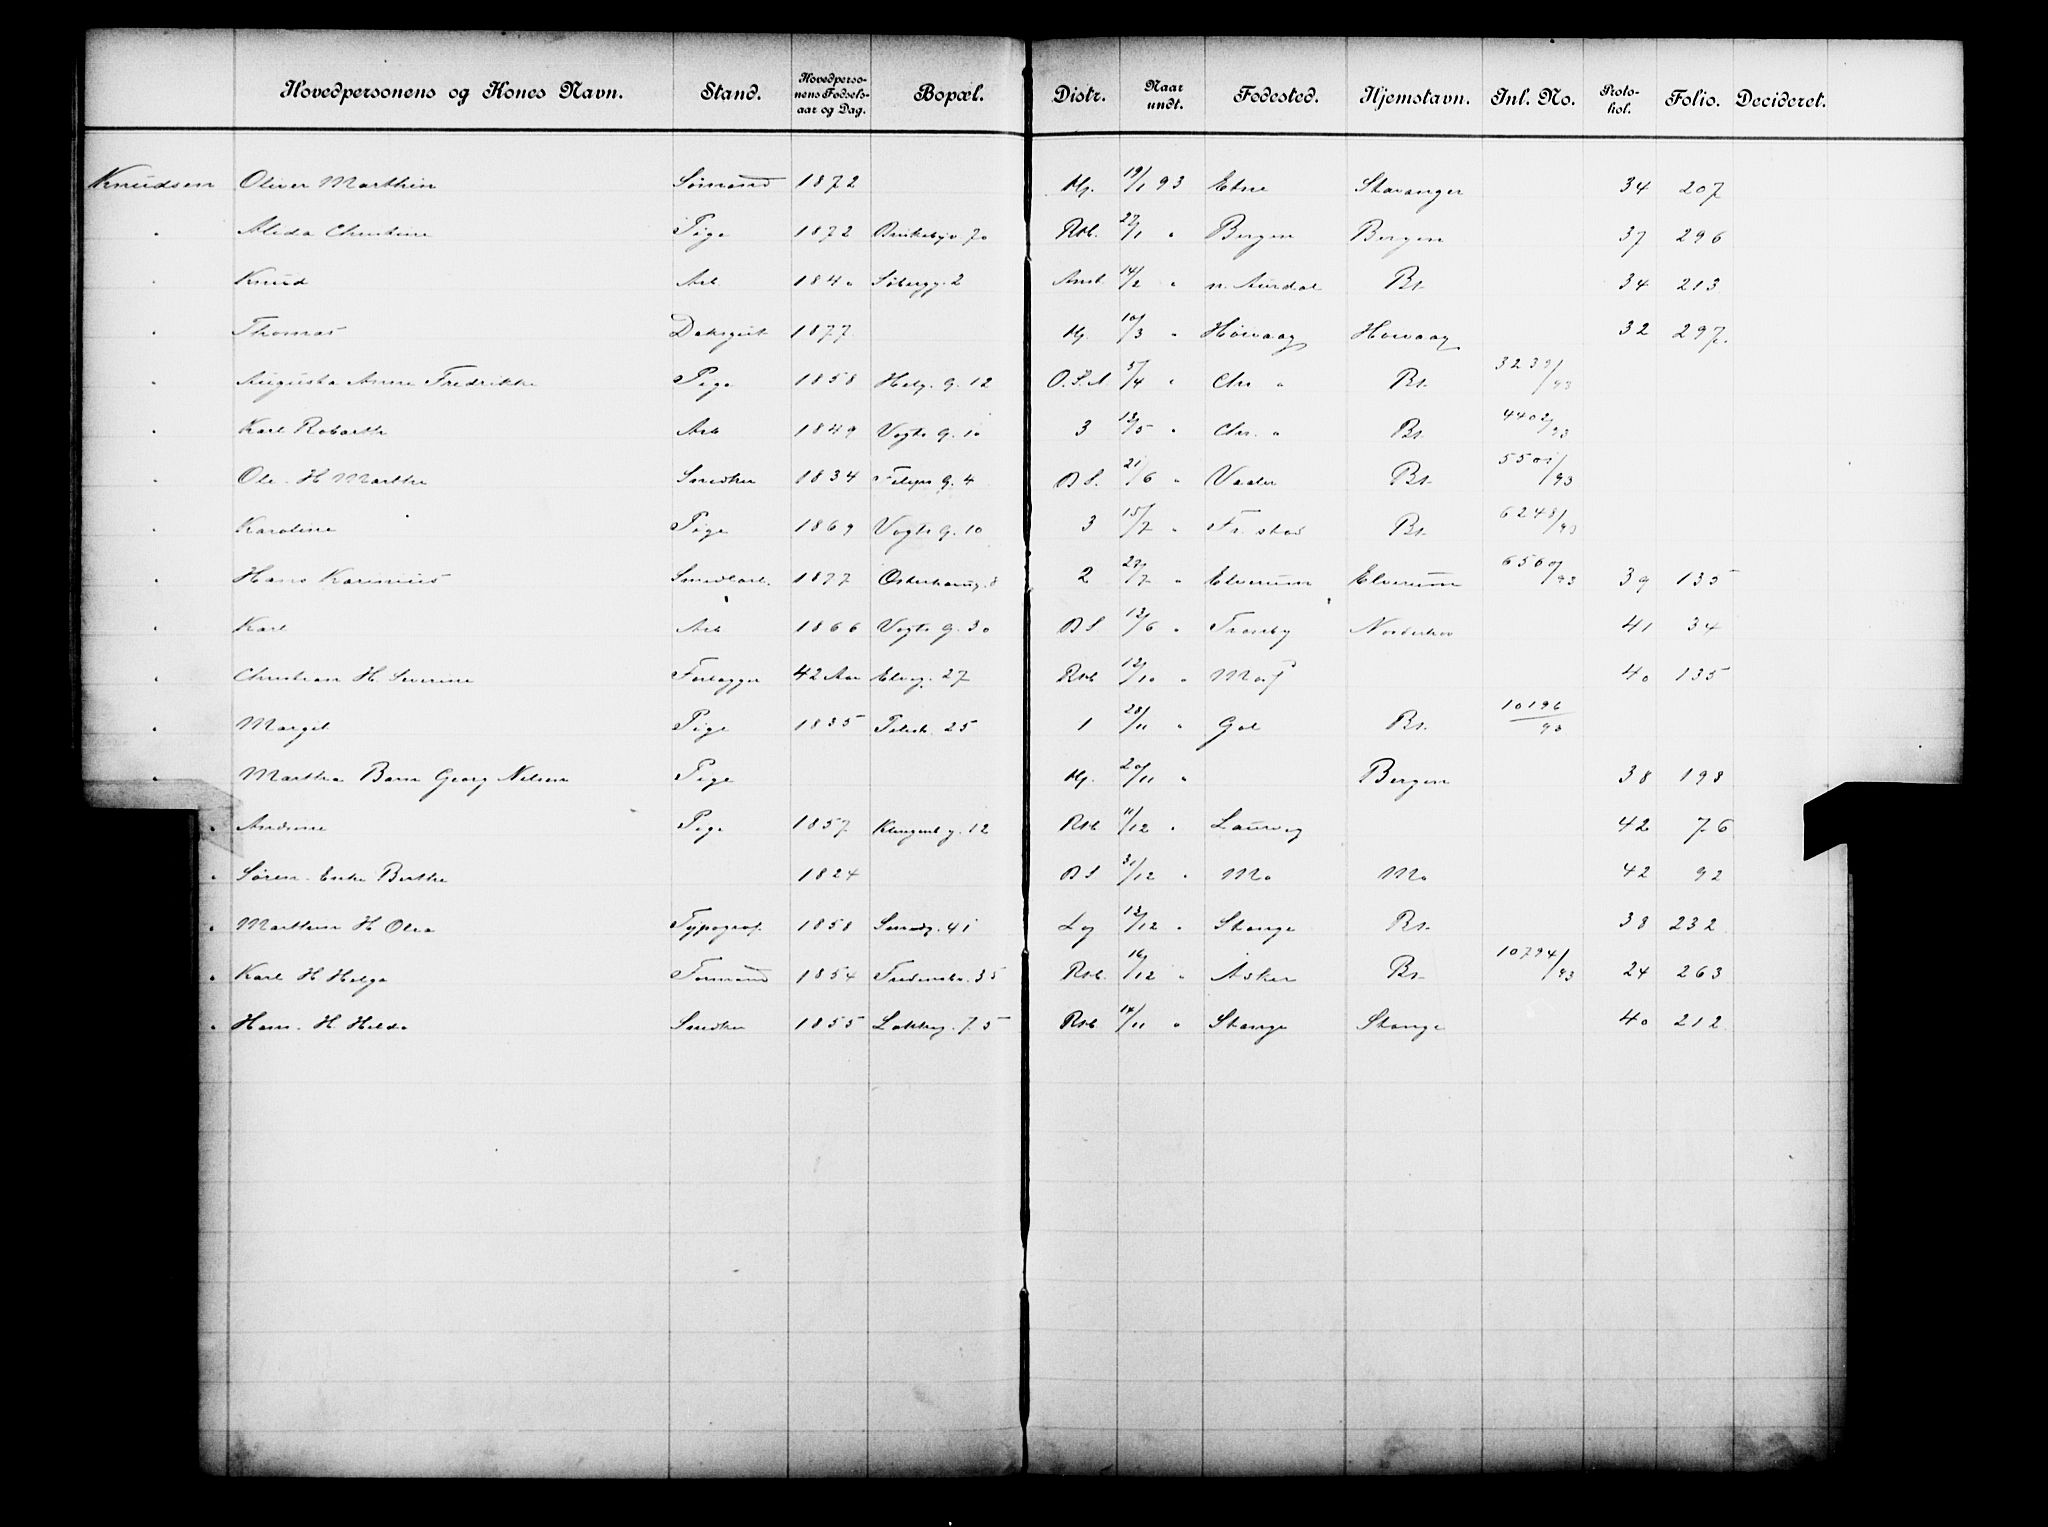 Hovedpersonens og Kones Navn. Stand. Hovedperso-nens Fødsels-aar og Dag. Bopæl. Distr. Naar undt. Fødested. Hjemstavn. Inl. No. Proto-kol. Folio. Decideret.
Knudsen Oliver Marthin Sømand 1872 Hj. 19/1 93 Etne Stavanger 34 207
" Alida Christine Pige 1872 70 Rtb. 27/1 " Bergen Bergen 37 296
" Knud Arb 1840 2 14/2 " n. Aurdal Bt. 34 213
" Thomas Daksgut 1877 Hj. 10/3 " Høivaag Høivaag 32 297.
" Augusta Anne Fredrikke Pige 1858 Helg. G. 12 O.S.A. 5/4 " Chr " Bt. 3239/93
" Karl Arb 1849 Vogts G. 10 3 13/5 " Chr. " Bt. 4402/93
" Ole. H Marthe Snedker 1834 G. 4 BS. 21/6 " Vaaler Bt. 5501/93
" Karoline Pige 1869 Vogts G. 10 3 15/7 " Fr. stad Bt. 6248/93
" Hans Karinius 1877 Østerhausg. 8 2 27/7 " Elverum Elverum 6560/93 39 135
" Karl Arb 1866 Vogts G. 30 BS 12/6 " Norderhov 41 34
" Christian H Severine Forlægger 42 Aar Elveg. 27 Rtb 12/10 " 40 135
" Margit Pige 1835 25 1 28/11 " Gol Bt. 10196/93
" Martha Barn Georg Nilsen Pige Hj. 20/11 " Bergen 38 193
" Andrine Pige 1857 Klingenb g. 12 Rtb 11/12 " Laurvig 42 76
" Søren. Enke Berthe 1824 BS 31/12 " Mo Mo 42 92
" Marthin H Olea Typograf. 1858 41 12/12 " Stange Bt. 38 232
" Karl H Helga Formand 1854 Fredensb. 35 Rtb. 16/12 " Asker Bt. 10794/93 24 263
" Hans. H Hilda Snedker 1855 Løkkeg. 75 Rtb 14/11 " Stange Stange 40 212